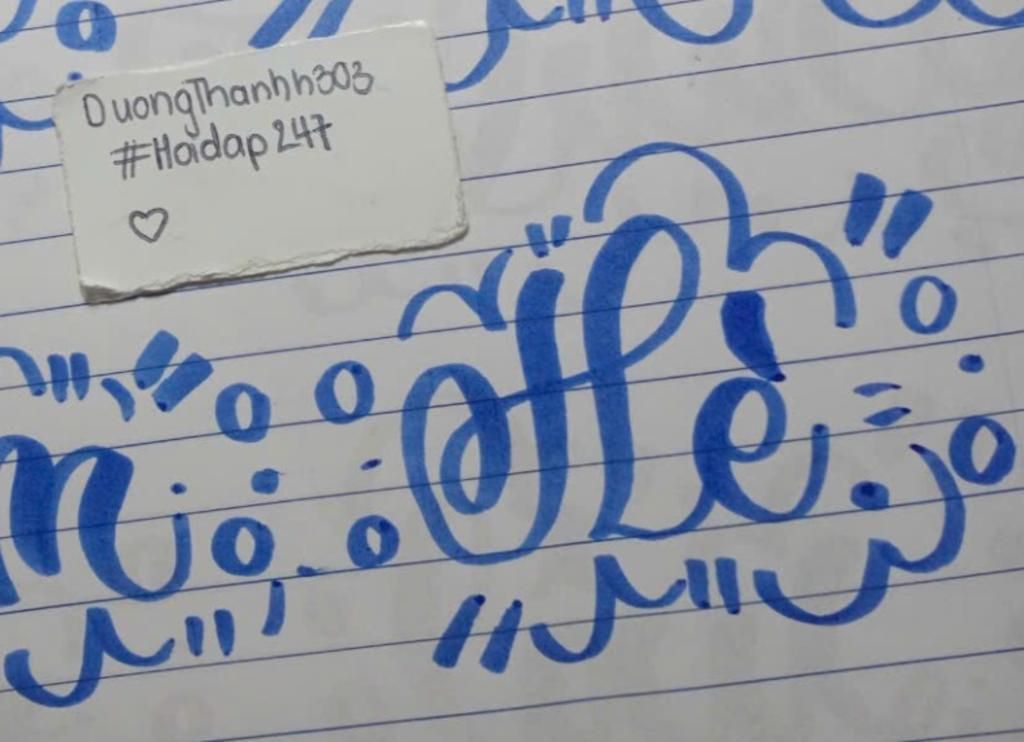 DuongThanhh303
#Hoidap247
Hè